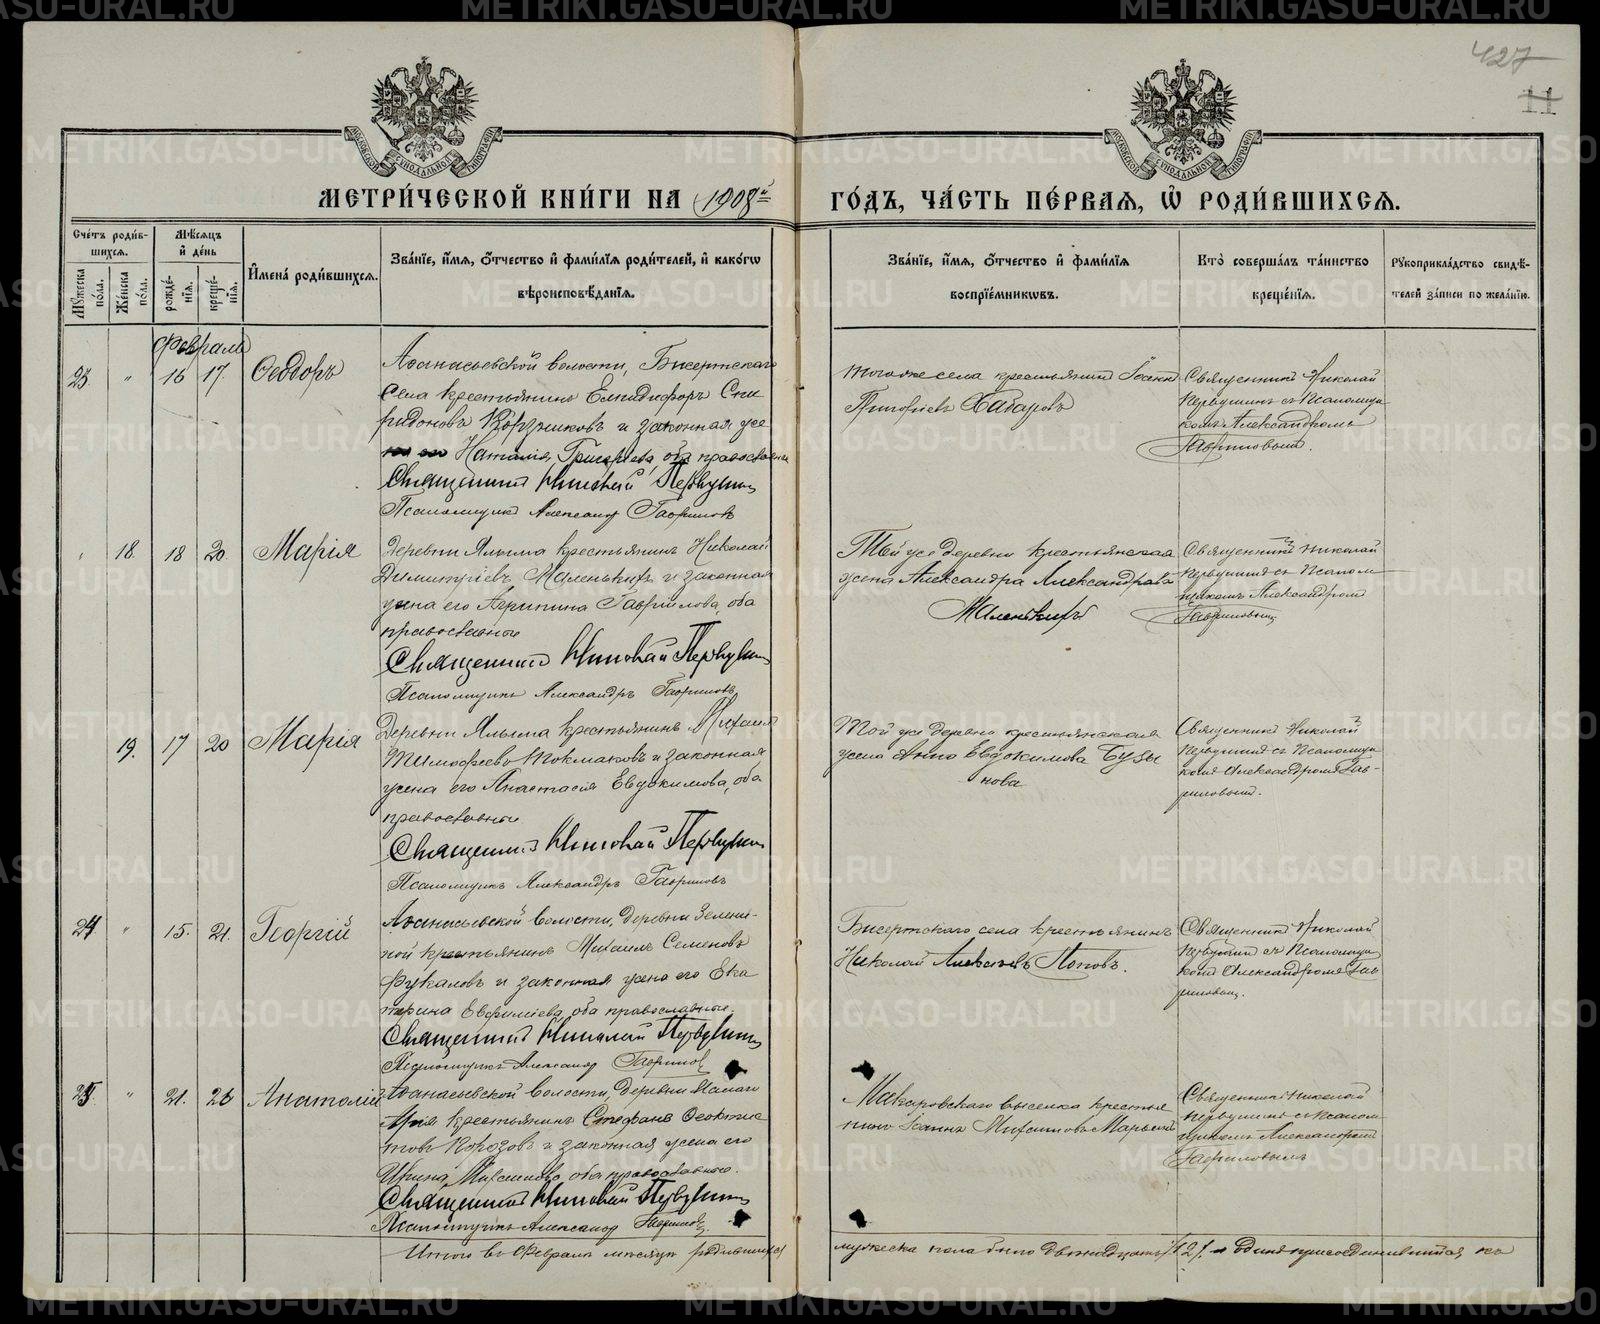 427
11
МЕТРИ́ЧЕСКОЙ КНИ́ГИ НА 1908й
ГО́ДЪ, ЧА́СТЬ ПЕ́РВАЯ, Ѡ҆ РОДИ́ВШИХСЯ.
Сче́тъ роди́в-
шихся.
Мѣ́сяцъ
и҆ де́нь
И҆мена̀ роди́вшихся.
Зва́нїе, и҆́мя, ѻ҆́тчество и҆ фами́лїя роди́телей, и҆ како́гѡ
вѣроисповѣ́данїя.
Зва́нїе, и҆́мя, ѻ҆́тчество и҆ фами́лїя
воспрїе́мникѡвъ.
Кто̀ соверша́лъ та́инство
креще́нїя.
Рꙋкоприкла́дство свидѣ́-
телей за́писи по жела́нїю.
Мꙋ́жеска по́ла.
Же́нска по́ла.
рожде́-
нїя.
креще́-
нїя.
Февраль
23 " 16 17. Ѳеодоръ
Аѳанасьевской волости, Бисертскаго
села крестьянинъ Елпидифоръ Спи-
ридоновъ и законная же-
на его Наталія Григорьева, оба православные
Священникъ Николай Первушинъ
Псаломщикъ Александръ Гавриловъ
того же села крестьянинъ Іоаннъ
Григорьевъ Хабаровъ
Священникъ Николай
Первушинъ съ Псаломщи-
комъ Александромъ
Гавриловымъ.
18. 18 20. Марія
Деревни Ялыма крестьянинъ Николай
Димитріевъ Маленькихъ и законная
жена его Агрипина Гавріилова, оба
православные
Священникъ Николай Первушинъ
Псаломщикъ Александръ Гавриловъ
Той же деревни крестьянская
жена Александра Александрова
Маленькихъ
Священникъ Николай
Первушинъ съ Псалом-
щикомъ Александромъ
Гавриловымъ
19. 17 20 Марія
Деревни Ялыма крестьянинъ Михаилъ
Тимофеевъ Токмаковъ и законная
жена его Анастасія Евдокимова, оба
православные
Священникъ Николай Первушинъ
Псаломщикъ Александръ Гавриловъ
Той же деревни крестьянская
жена Анна Евдокимова Бузы
нова
Священникъ Николай
Первушинъ съ Псаломщи-
комъ Александромъ Гав-
риловымъ.
24 " 15. 21. Георгій
Аѳанасьевской волости, деревни Зелени-
ной крестьянинъ Михаилъ Семеновъ
Фукаловъ и законная жена его Ека
терина Евфиміева, оба православные.
Священникъ Николай Первушинъ
Псаломщикъ Александръ Гавриловъ
Бисертскаго села крестьянинъ
Николай Алексѣевъ Поповъ.
Священникъ Николай
Первушинъ съ Псаломщи-
комъ Александромъ Гав-
риловымъ.
25. " 21. 26 Анатолій
Аѳанасьевской волости, деревни
крестьянинъ Стефанъ Ѳеоктис
товъ и законная жена его
Ирина Максимова, оба православные.
Священникъ Николай Первушинъ
Псаломщикъ Александръ Гавриловъ
Макаровскаго выселка крестья
нинъ Іоаннъ
Священникъ Николай
Первушинъ съ Псалом-
щикомъ Александромъ
Гавриловымъ
Итого въ Февралѣ мѣсяцѣ родившихся
мужеска пола было двѣнадцать /12/ и одинъ присоединившійся къ